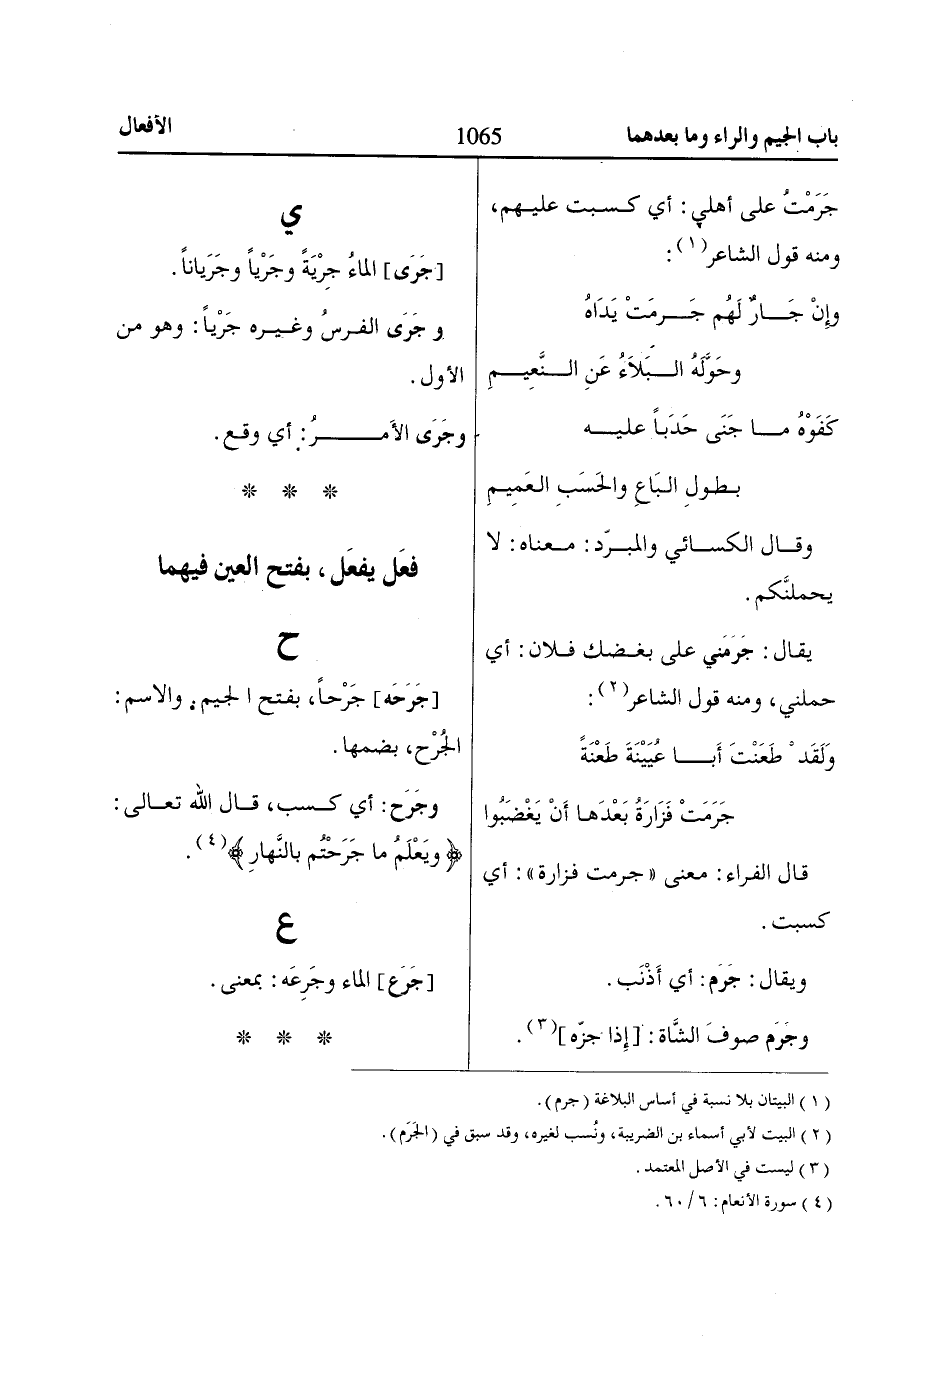 باب الجيم والراء وما بعدهما 1065 الأفعال
جَرَمْتُ على أهلي: أي كـسـبـت عليـهم،
ومنه قول الشاعر(١):
وإنْ جَــارٌ لَهُم جَــرمَتْ يَدَاهُ
وحَوَّلَهُ الــبَلاَءُ عَنِ الــنَّعِيــمِ
كَفَوْهُ مــا جَنَى حَدَباً عليــه
بـطـولِ البَاعِ والحَسَبِ العَمِيمِ
وقـال الكسـائي والمبـرّد: مـعناه: لا
يحملنَّكم.
يقـال: جَرَمَني على بغـضك فـلان: أي
حملني، ومنه قول الشاعر(٢):
وَلَقَدْ طَعَنْتَ أَبــا عُيَيْنَةَ طَعْنَةً
جَرَمَتْ فَزَارَةُ بَعْدَها أَنْ يَغْضَبُوا
قال الفراء: معنى «جرمت فزارة»: أي
كسبت.
ويقال: جَرَم: أي أَذْنَب.
وجَرَم صوفَ الشَّاة: [إذا جزّه](٣).
ي
[جَرَى] الماءُ جِرْيَةً وجَرْياً وجَرَياناً.
و جَرَى الفـرسُ وغـيـره جَرْياً: وهو من
الأول.
وجَرَى الأمـــرُ: أي وقـع.
* * *
فعَل يفعَل، بفتح العين فيهما
ح
[جَرَحَه] جَرْحاً، بفتح الجيم، والاسم:
الجُرْح، بضمها.
وجَرَح: أي كـسب، قـال الله تعـالى:
﴿ويَعْلَمُ ما جَرَحْتُم بالنَّهارِ﴾(٤).
ع
[جَرَع] الماء وجَرِعَه: بمعنى.
* * *
(١) البيتان بلا نسبة في أساس البلاغة (جرم).
(٢) البيت لأبي أسماء بن الضريبة، ونُسب لغيره، وقد سبق في (الجَرَم).
(٣) ليست في الأصل المعتمد.
(٤) سورة الأنعام: ٦/ ٦٠.